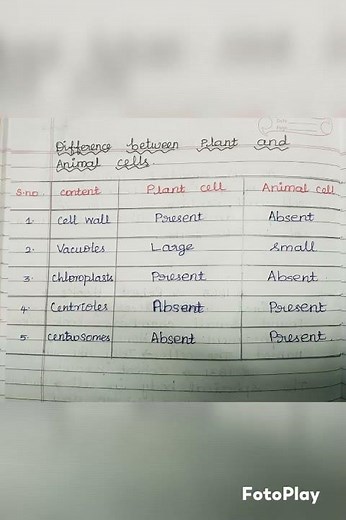 Difference between Plant and
Animal cells.
S.no content Plant cell Animal cell
1. Cell wall Present Absent
2. Vacuoles Large Small
3. chloroplasts Present Absent
4. Centrioles Absent Present
5. centrosomes Absent Present
FotoPlay